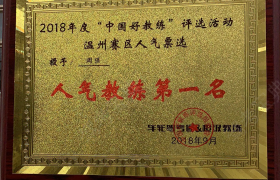 2018年度“中国好教练”评选活动
温州赛区人气票选
授予
人气教练第一名
2018年9月